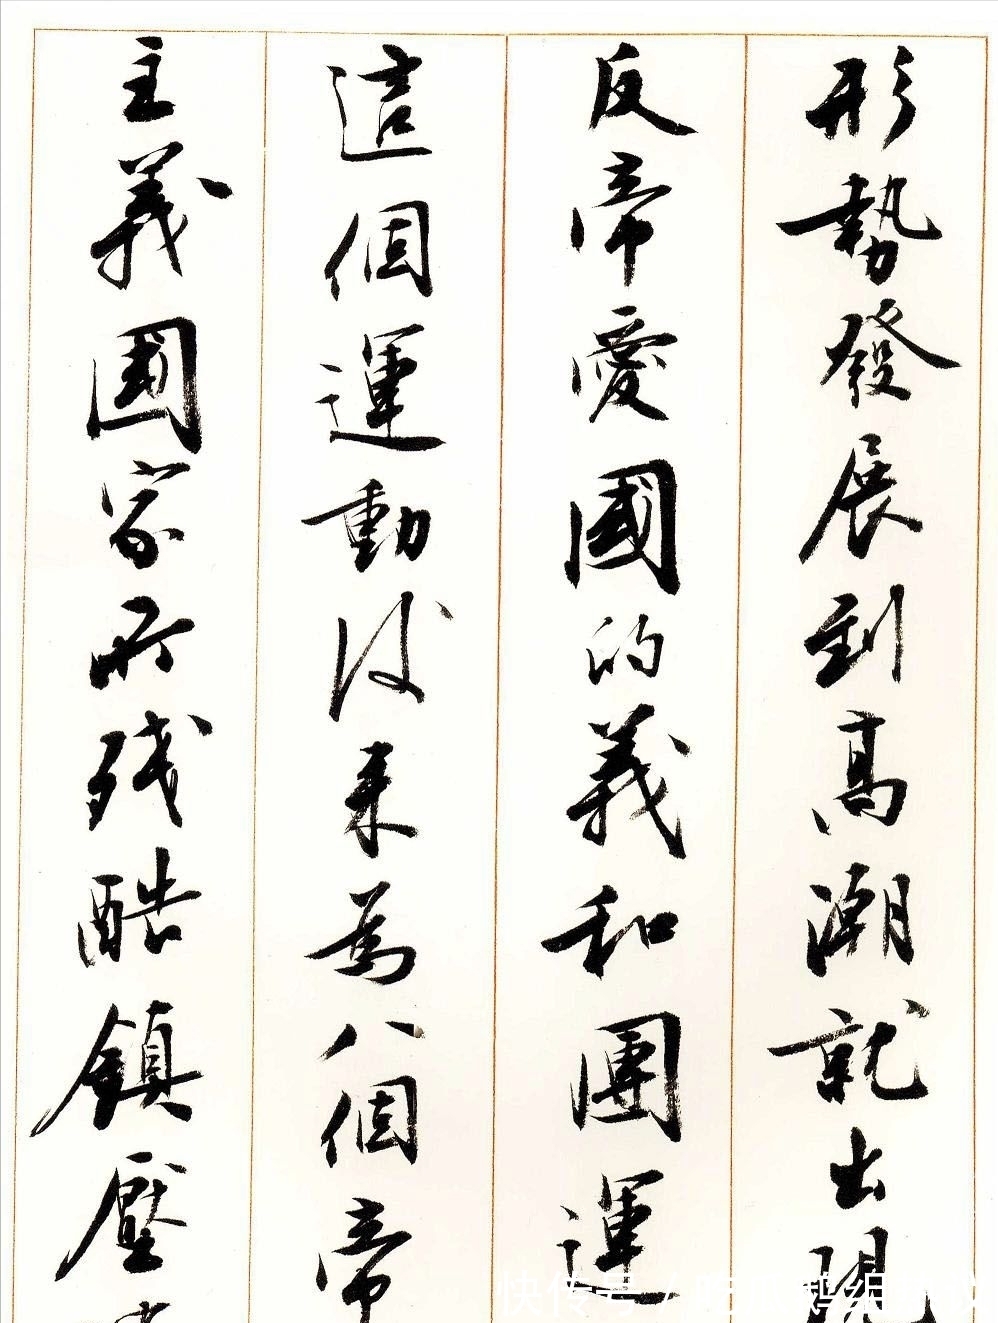 形勢發展到高潮就出現
反帝愛國的義和團運
這個運動後来為八個帝
主義國家所残酷鎮壓
快传号/